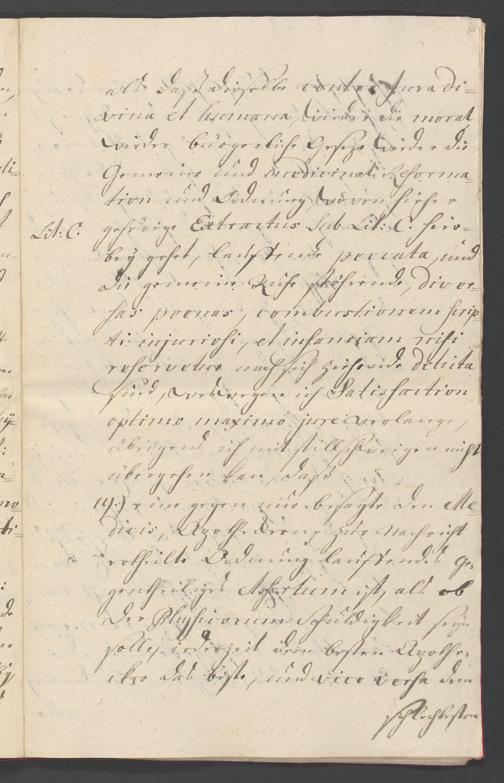 als daß dieselbe contra jura di-
vina et humana, wieder die moral
wieder bürgerliche Gesetze wieder die
Gemeine und medicinal Reforma-
tion und Ordnung, wovon hieher
Lit: C. gehörige Extractus sub Lit: C. hier-
bey gehet, lauffende peccata, und
die gemeine Ruhe stöhrende, diver-
sas poenas, combustionem scrip-
ti injuriosi, et infamiam nisi
reservetur nach sich ziehende delicta
sind, weswegen ich Satisfaction
optimo maximo jure verlange,
übrigens ich mit stillschweigen nicht
übergehen kan, daß
19.) eim gegen nur besagte den Me-
dicis, Apotheckern zur Nachricht
ertheilte Ordnung lauffendes Ge-
gentheiliges Assertum ist, als ob
der Physicorum Schuldigkeit seyn
solle, iederzeit dem besten Apothe-
cker das beste, und vice versa dem
schlechtesten